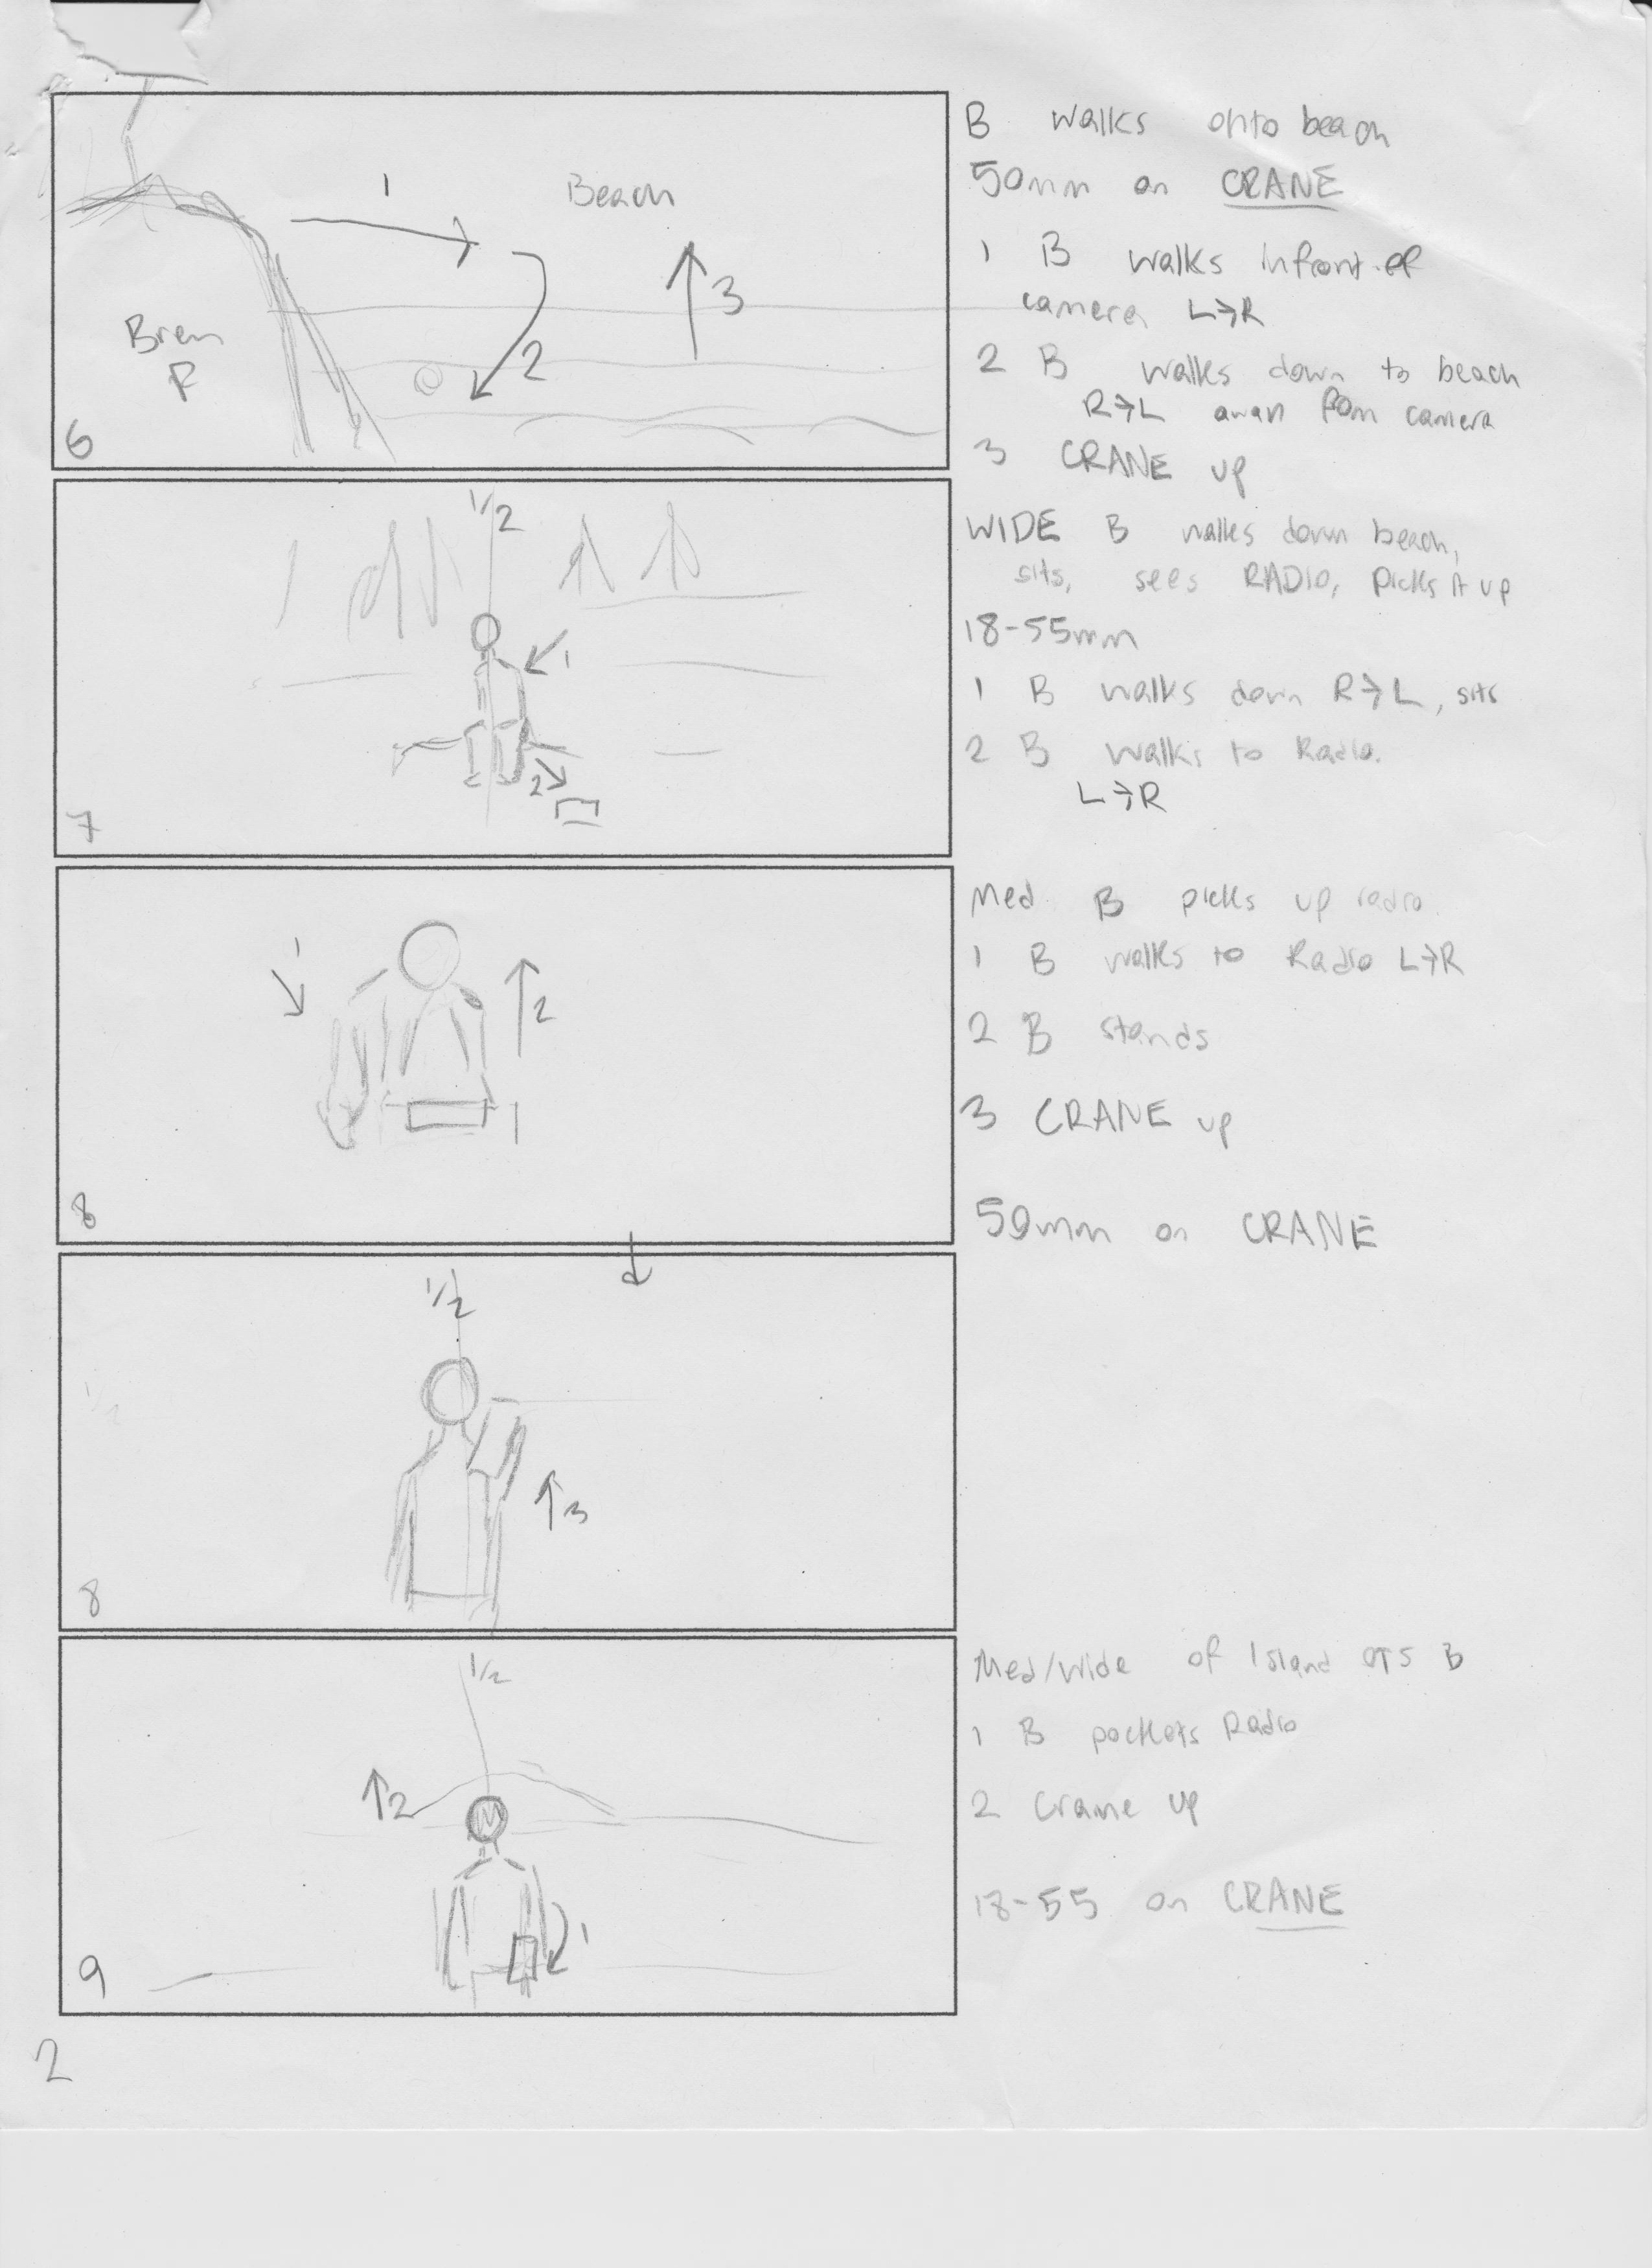 B walks onto beach
50mm on CRANE
1 B walks infront of
camera L→R
2 B walks down to beach
R→L away from camera
3 CRANE up
1
Beach
3
Bren
2
6
WIDE B walks down beach,
sits, sees RADIO, Picks it up
18-55mm
1 B walks down R→L, sits
2 B walks to Radio.
L→R
1/2
1
2
7
Med B picks up radio
1 B walks to Radio L→R
2 B stands
3 CRANE up
50mm on CRANE
1
2
8
1/2
3
8
Med/Wide of Island OTS B
1 B pockets Radio
2 Crane up
18-55 on CRANE
1/2
2
1
9
2